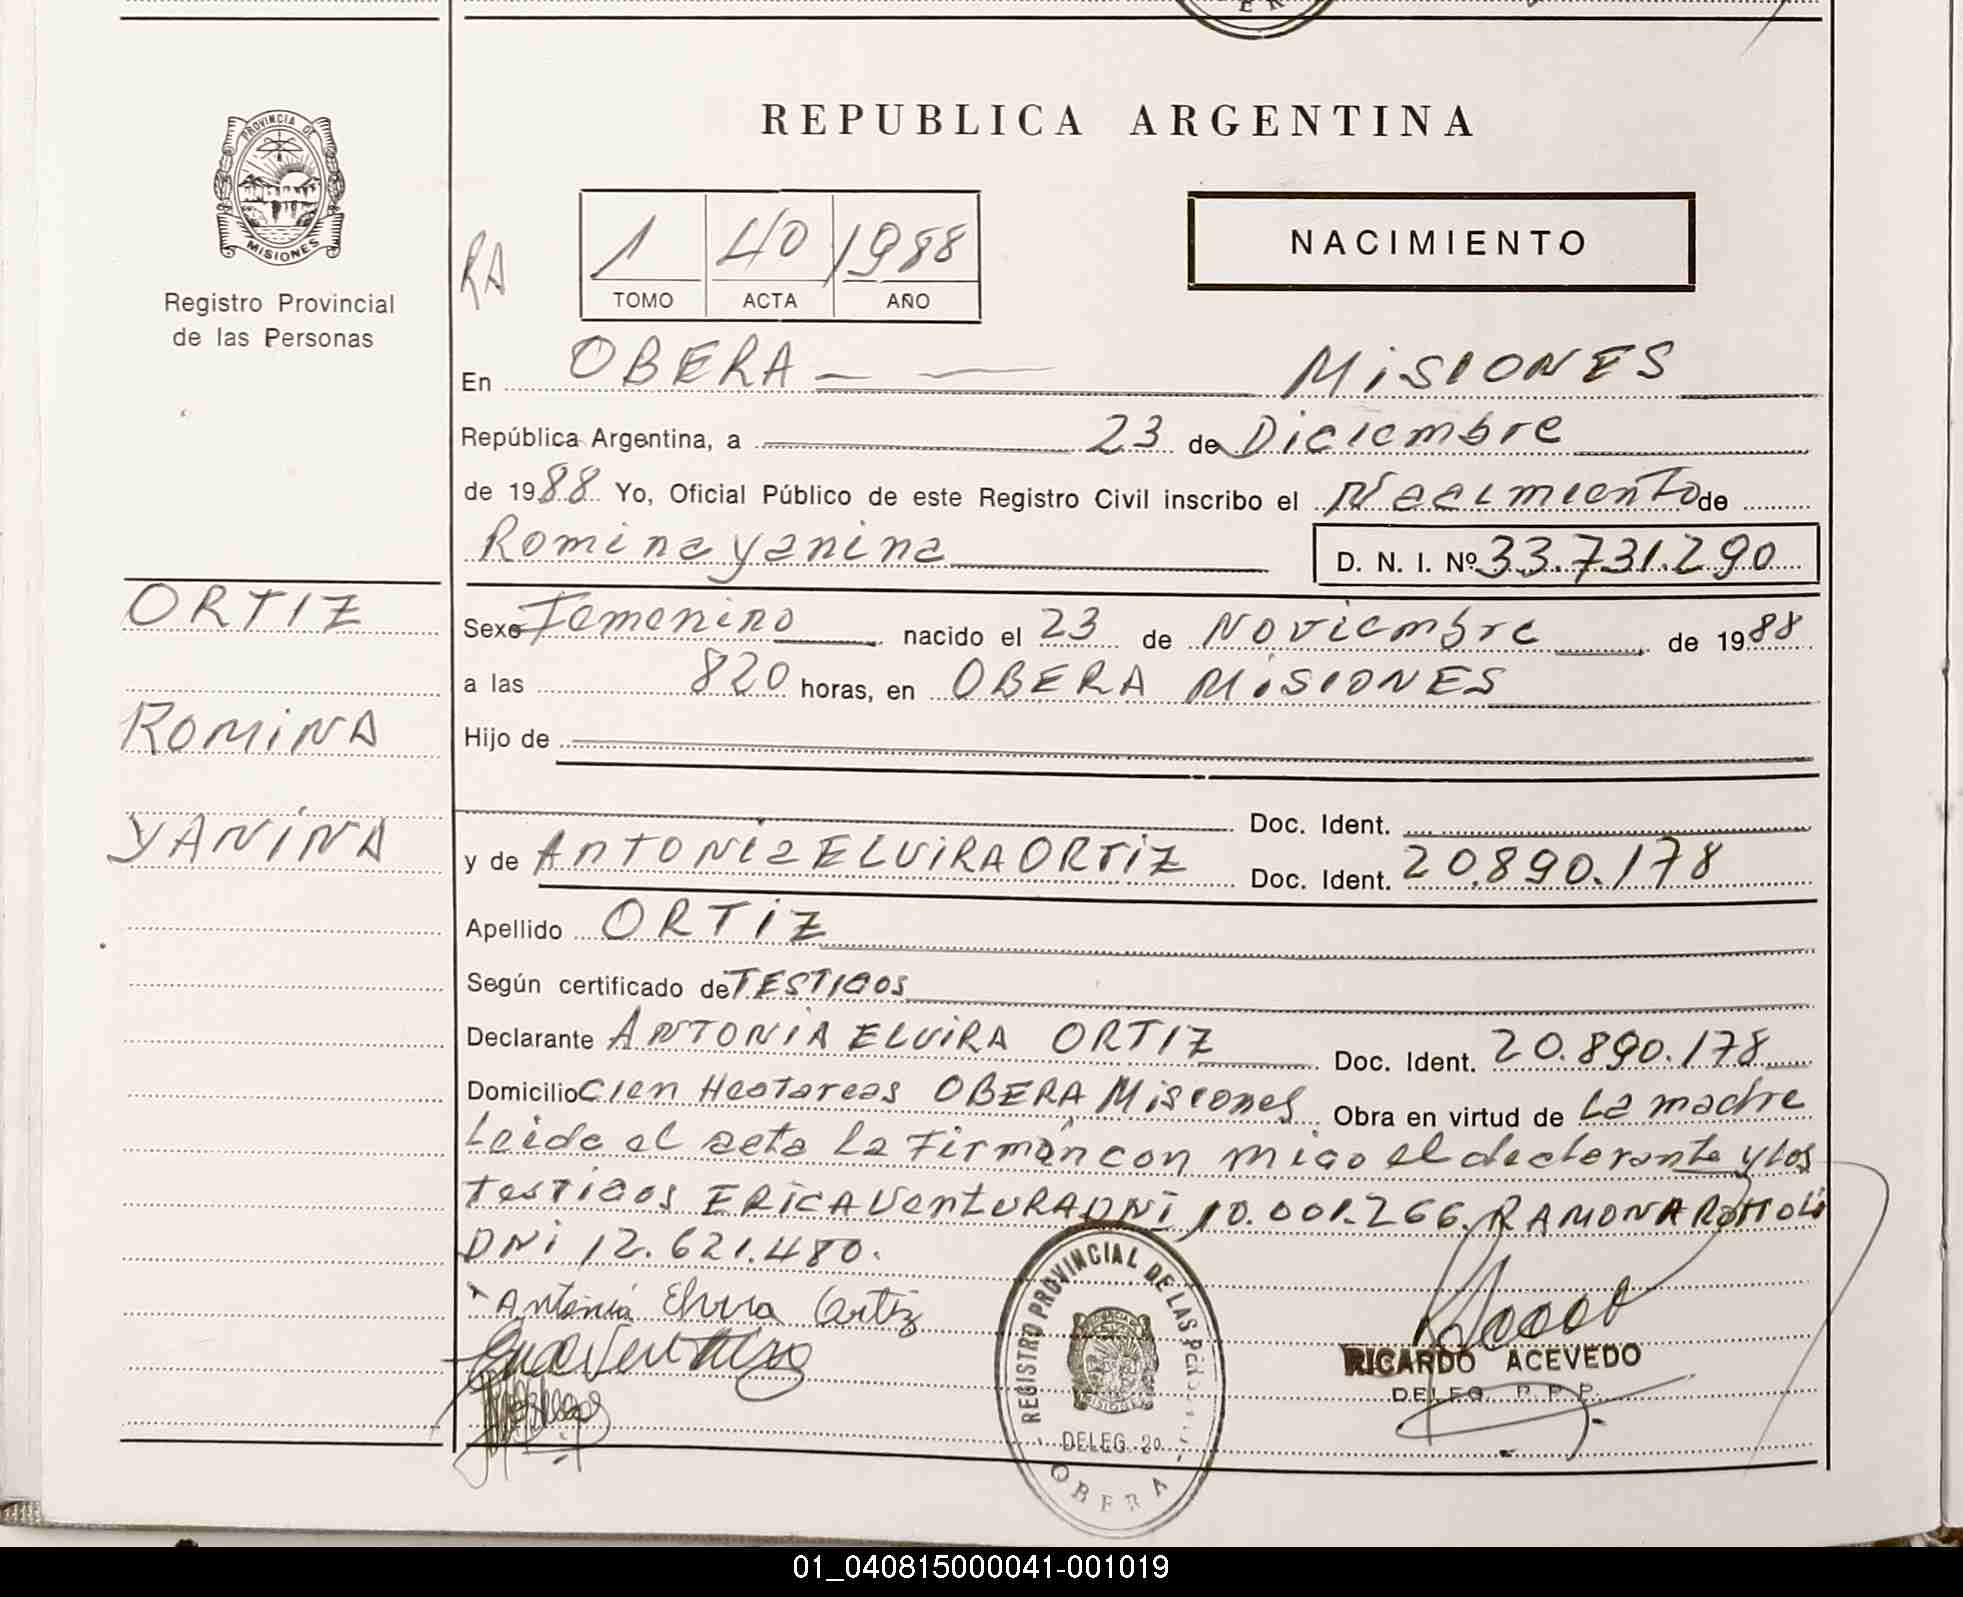 REPUBLICA ARGENTINA
PROVINCIA DE
MISIONES
Registro Provincial
de las Personas
RA
1 40 1988
TOMO ACTA AÑO
NACIMIENTO
En OBERA MiSIONES
República Argentina, a 23 de Diciembre
de 1988 Yo, Oficial Público de este Registro Civil inscribo el Nacimiento de
Romina Yanina D. N. I. Nº 33.731.290
ORTIZ
ROMiNA
YANiNA
Sexo Femenino nacido el 23 de Noviembre de 1988
a las 820 horas, en OBERA MiSIONES
Hijo de
Doc. Ident.
y de ANTONia ELViRA ORTiZ Doc. Ident. 20.890.178
Apellido ORTiZ
Según certificado de TESTIGOS
Declarante ANTONiA ELViRA ORTIZ Doc. Ident. 20.890.178
Domicilio Cien Hectareas OBERA Misiones Obra en virtud de La madre
Leida el acta La Firman con migo el declarante y Los
testigos ERiCA VentURA DNi 10.001.266. RAMONA
DNi 12.621.480.
Antonia Elvira Ortiz
REGISTRO PROVINCIAL DE LAS PERSONAS
MISIONES
DELEG. 2a.
OBERA
RICARDO ACEVEDO
DELEG. R. P. P.
01_040815000041-001019